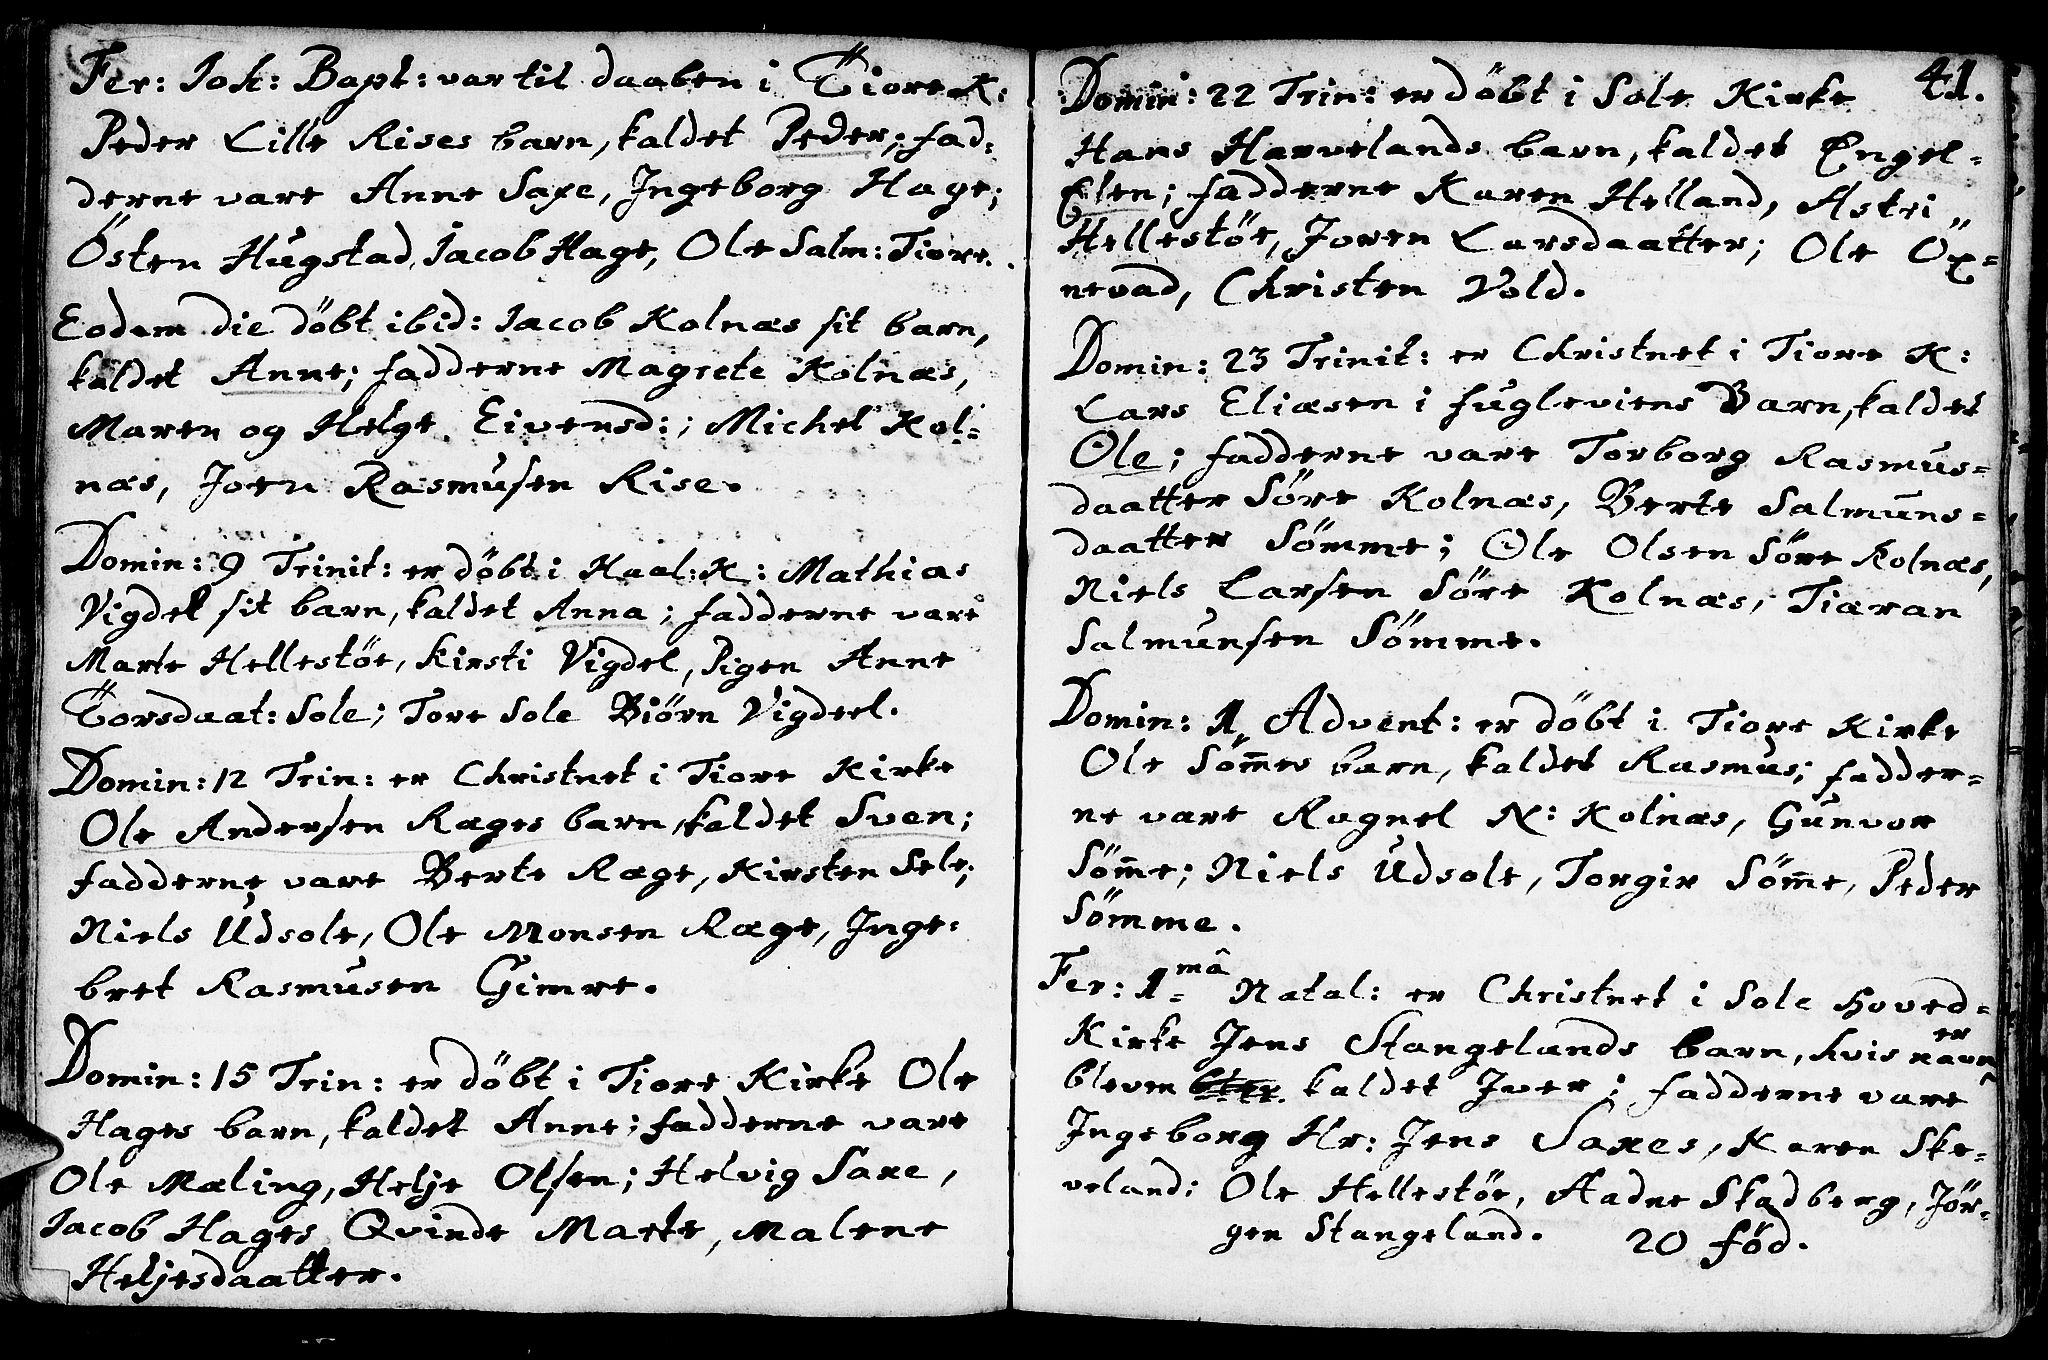 Fer: Joh: Bapt: var til daaben i Tiore K:
Peder Lille Rises barn, kaldet Peder; fad:
derne vare Anne Saxe, Ingeborg Hage;
Östen Hugstad, Jacob Hage, Ole Salm: Tiore.
Eodem die döbt ibid: Jacob Kolnæs sit barn,
kaldet Anne; fadderne Magrete Kolnæs,
Maren og Helge Eivensd:; Michel Kol:
næs, Joen Rasmusen Rise.
Domin: 9 Trinit: er döbt i Haal: K: Mathias
Vigdel sit barn, kaldet Anna; fadderne vare
Marte Hellestöe, Kirsti Vigdel, Pigen Anne
Torsdaat: Sole; Tore Sole Biörn Vigdeel.
Domin: 12 Trin: er Christnet i Tiore Kirke
Ole Andersen Ræges barn, kaldet Sven;
fadderne vare Berte Ræge, Kirsten Sele;
Niels Udsole, Ole Monsen Ræge, Inge:
bret Rasmusen Gimre.
Domin: 15 Trin: er döbt i Tiore Kirke Ole
Hages barn, kaldet Anne; fadderne vare
Ole Mæling, Helje Olsen; Helvig Saxe,
Jacob Hages Qvinde Marte, Malene
Heljesdaatter.
41.
Domin: 22 Trin: er döbt i Sole Kirke
Hans Harvelands barn, kaldet Engel=
Elen; fadderne Karen Helland, Astri
Hellestöe, Joren Larsdaatter; Ole Öx=
nevad, Christen Vold.
Domin: 23 Trinit: er Christnet i Tiore K:
Lars Eliæsen i fugleviens Barn, kaldet
Ole; fadderne vare Torborg Rasmus=
daatter Söre Kolnæs, Berte Salmuns=
daatter Sömme; Ole Olsen Söre Kolnæs,
Niels Larsen Söre Kolnæs, Tiæran
Salmunsen Sömme.
Domin: 1 Advent: er döbt i Tiore Kirke
Ole Söm̄es barn, kaldet Rasmus; fadder=
ne vare Ragnel N: Kolnæs, Gunvor
Söm̄e; Niels Udsole, Torgir Söm̄e, Peder
Sömme.
Fer: 1mâ Natal: er Christnet i Sole Hoved=
Kirke Jens Stangelands barn, hvis navn er
bleven kaldet Iver; fadderne vare
Ingeborg Hr: Jens Saxes, Karen Ske=
veland; Ole Hellestöe, Aadne Skadberg, Jör=
gen Stangeland. 20 föd.